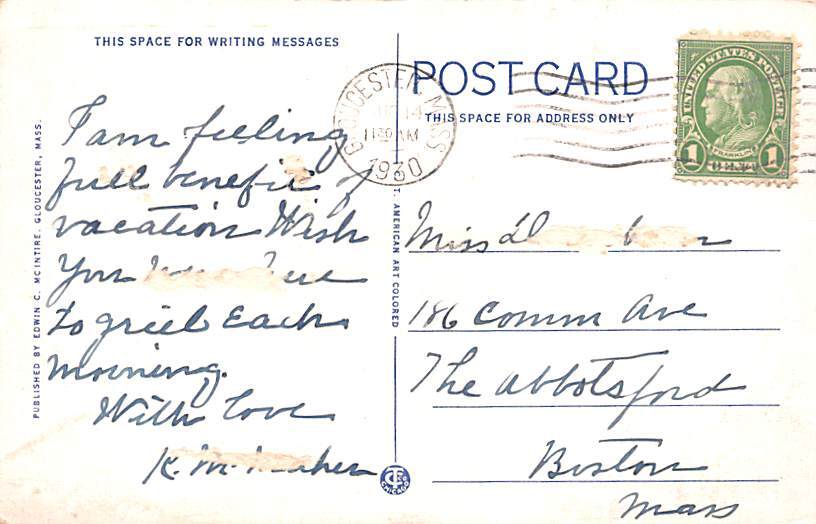 THIS SPACE FOR WRITING MESSAGES
POST CARD
THIS SPACE FOR ADDRESS ONLY
GLOUCESTER, MASS.
14
1130 AM
1930
UNITED STATES POSTAGE
FRANKLIN
1 CENT 1
I am feeling
full benefit of
vacation Wish
You
to greet Each
morning.
With love
K. M.
Miss
186 Comm Ave
The Abbotsford
Boston
Mass
PUBLISHED BY EDWIN C. MCINTIRE, GLOUCESTER, MASS.
C. T. AMERICAN ART COLORED
CHICAGO